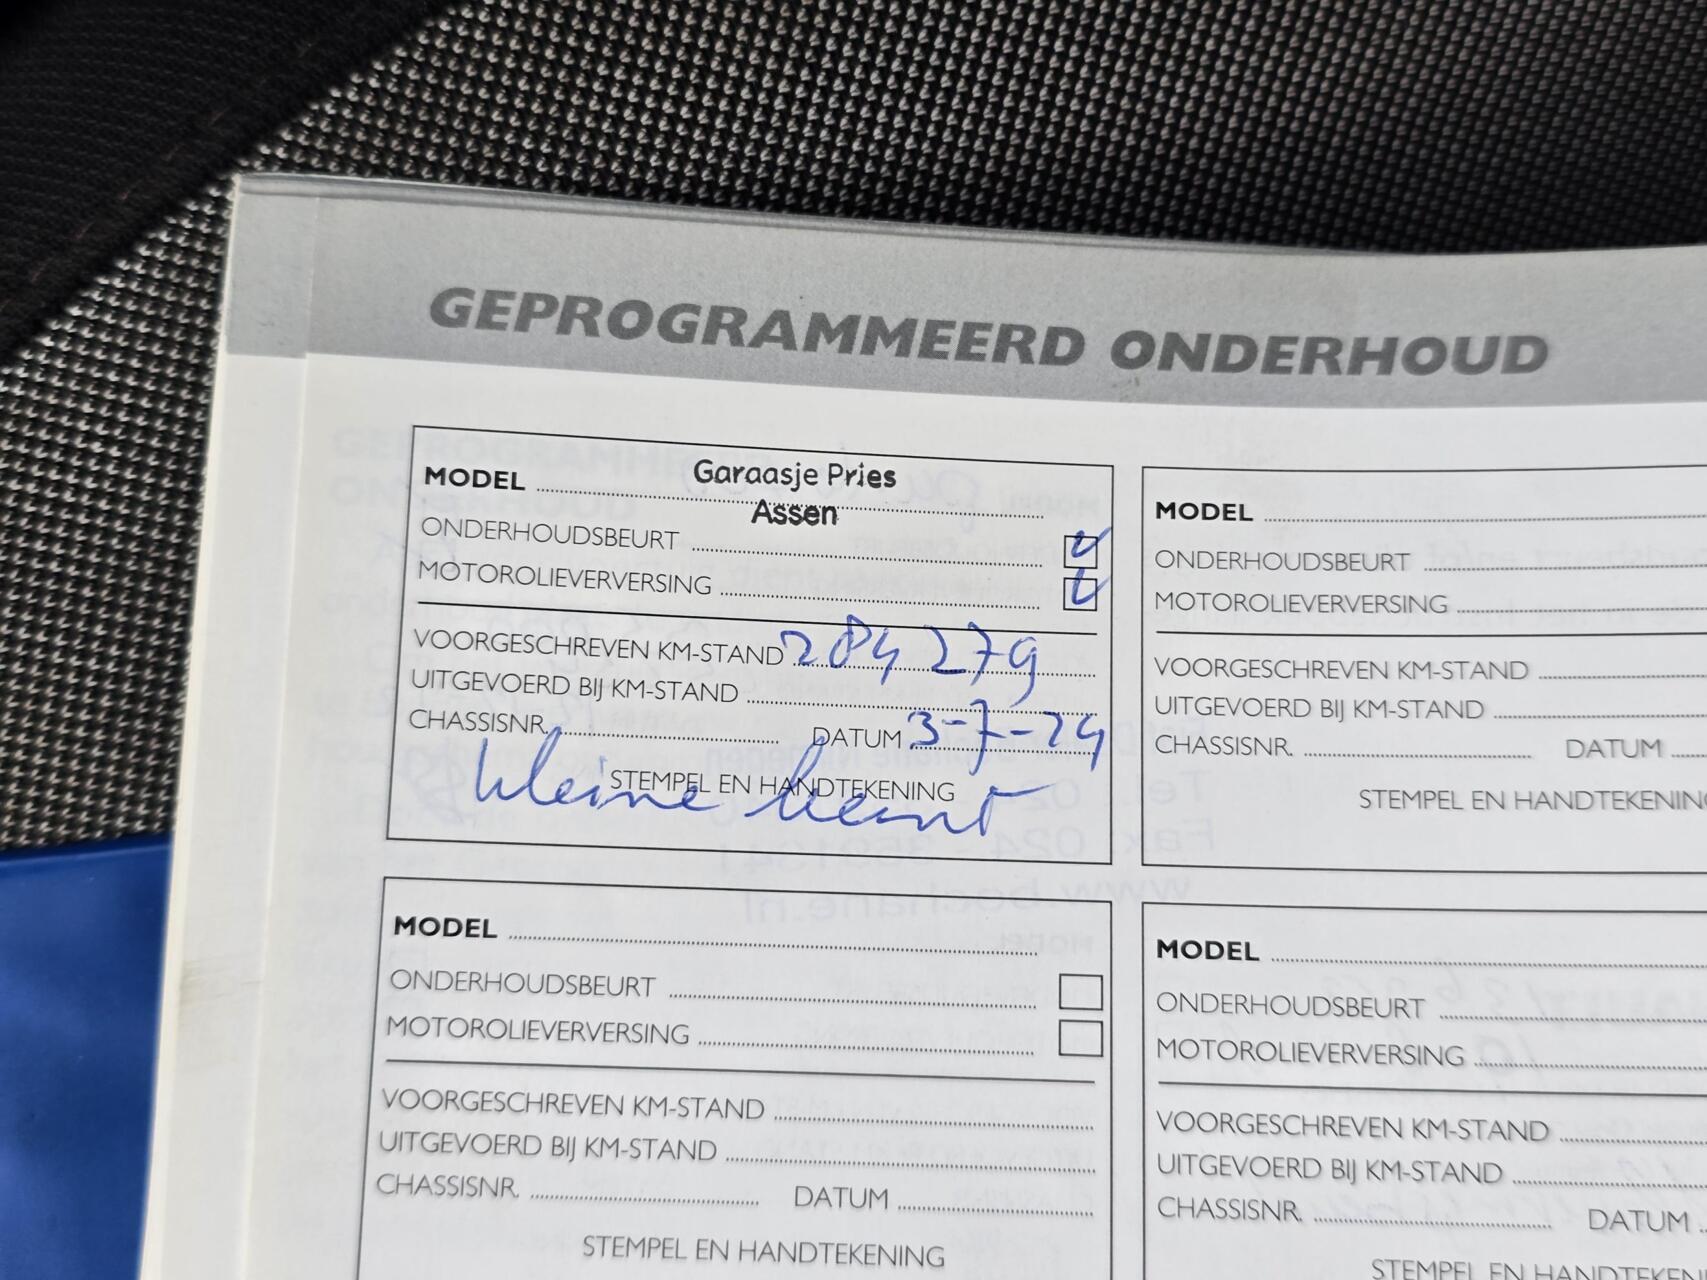 GEPROGRAMMEERD ONDERHOUD
MODEL Garaasje Pries
Assen
ONDERHOUDSBEURT
MOTOROLIEVERVERSING
VOORGESCHREVEN KM-STAND 284 279
UITGEVOERD BIJ KM-STAND
CHASSISNR. DATUM 3-7-24
STEMPEL EN HANDTEKENING
kleine beurt
MODEL
ONDERHOUDSBEURT
MOTOROLIEVERVERSING
VOORGESCHREVEN KM-STAND
UITGEVOERD BIJ KM-STAND
CHASSISNR. DATUM
STEMPEL EN HANDTEKENING
MODEL
ONDERHOUDSBEURT
MOTOROLIEVERVERSING
VOORGESCHREVEN KM-STAND
UITGEVOERD BIJ KM-STAND
CHASSISNR. DATUM
STEMPEL EN HANDTEKENING
MODEL
ONDERHOUDSBEURT
MOTOROLIEVERVERSING
VOORGESCHREVEN KM-STAND
UITGEVOERD BIJ KM-STAND
CHASSISNR. DATUM
STEMPEL EN HANDTEKEN